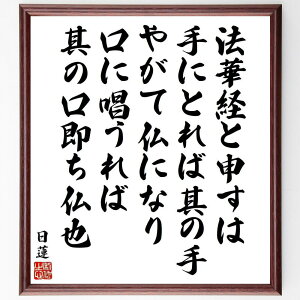 法華経と申すは
手にとれば其の手
やがて仏になり
口に唱うれば
其の口即ち仏也
日蓮